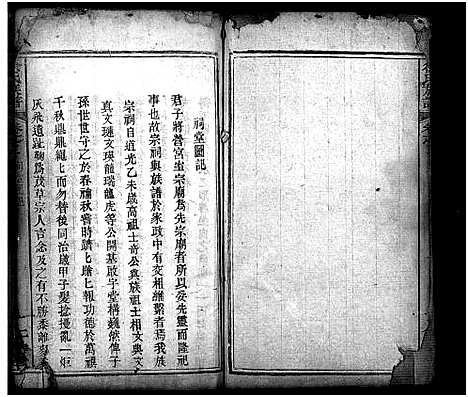 祠堂圖記
君子將營宮室宗廟為先宗廟者所以妥先靈而隆祀
事也故宗祠與族譜於家政中有交相維繫者焉我族
宗祠自道光乙未歲高祖士音公與族祖士相文典文
真文璉文瑛龍瑞龍虎等公開基啟宇堂構巍然俾子
孫世世守之於春禴秋嘗時躋上報功德於萬禩
千秋鼎鼎繩上而勿替後同治歲甲子髮捻擾亂一炬
灰飛遺趾鞠為茂草宗人言念及之有不勝黍離